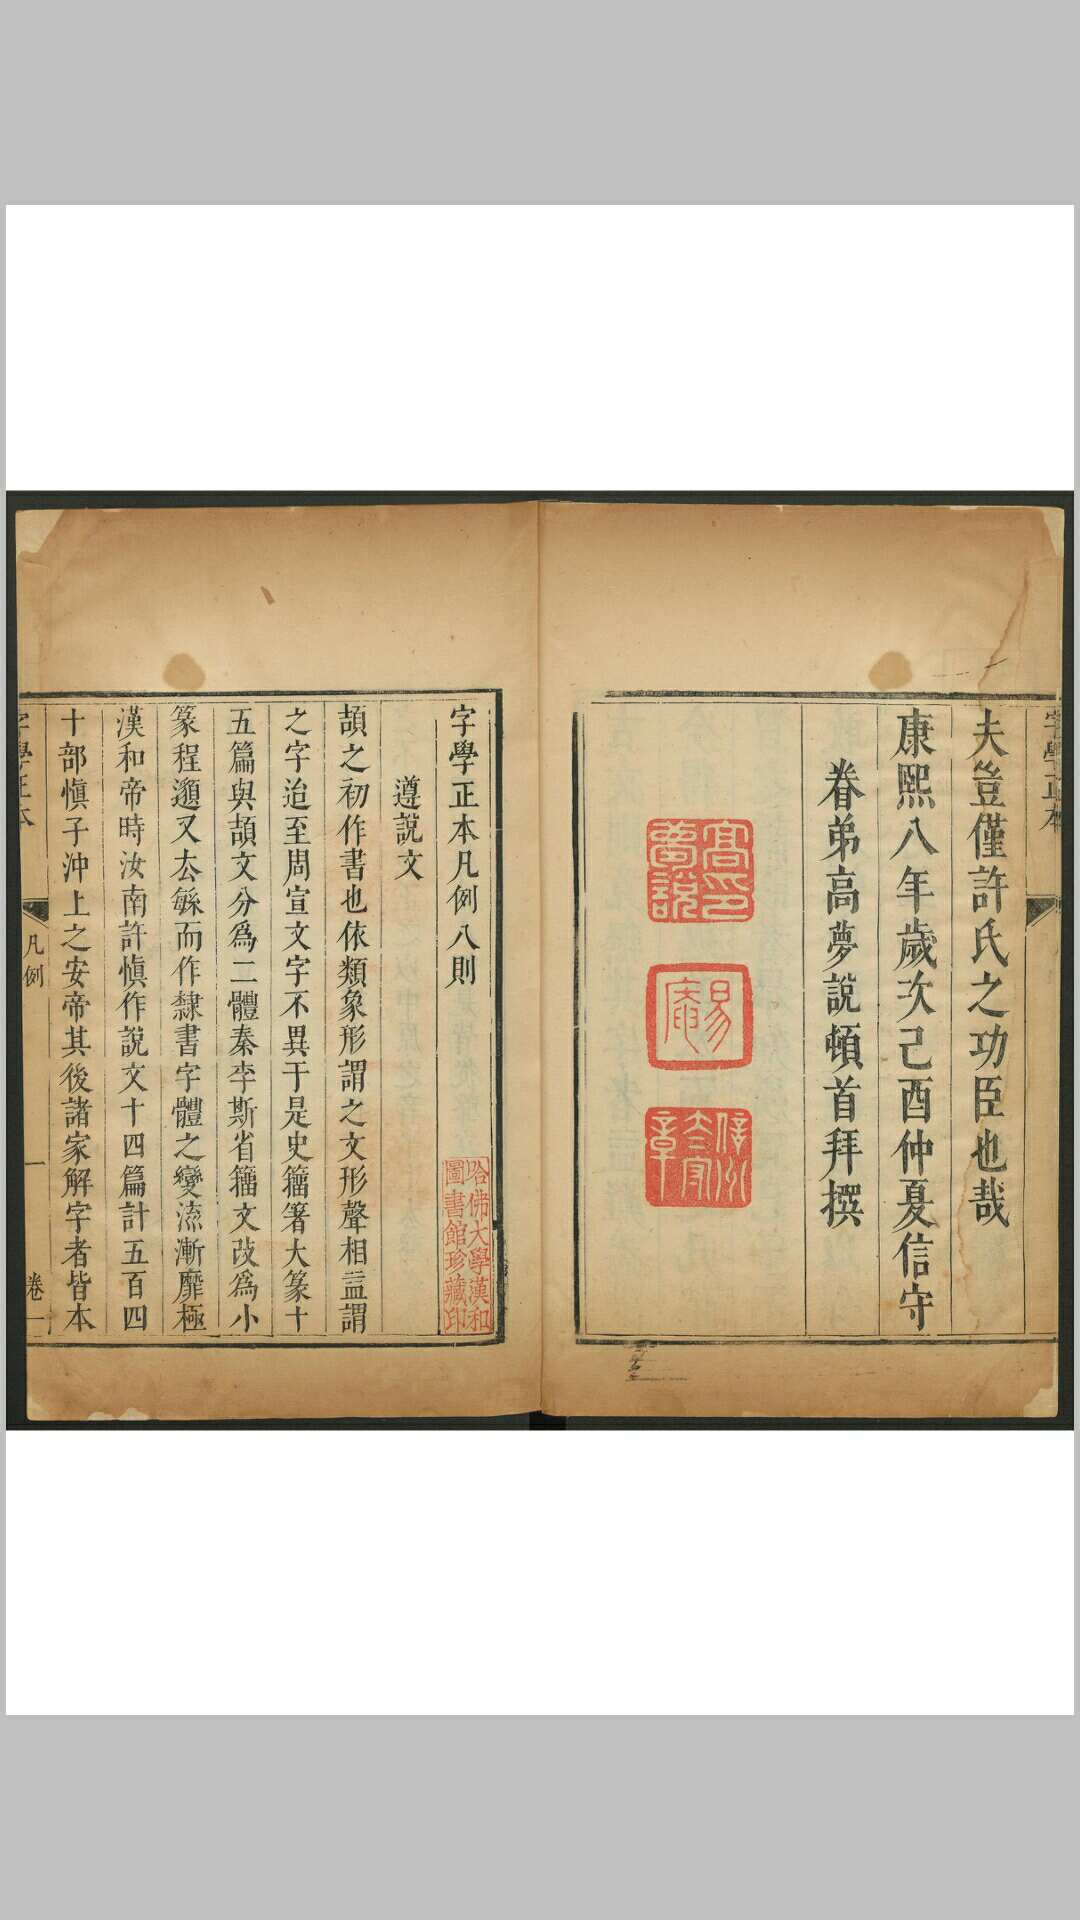 字學正本
夫豈僅許氏之功臣也哉
康熙八年歲次己酉仲夏信守
眷弟高夢說頓首拜撰
高印夢說
易菴
信州太守章
字學正本凡例八則
哈佛大學漢和圖書館珍藏印
遵說文
頡之初作書也依類象形謂之文形聲相益謂
之字迨至周宣文字不異于是史籀著大篆十
五篇與頡文分爲二體秦李斯省籀文改爲小
篆程邈又去緐而作隸書字體之變流漸靡極
漢和帝時汝南許愼作說文十四篇計五百四
十部愼子沖上之安帝其後諸家解字者皆本
字學正本
凡例
一
卷一